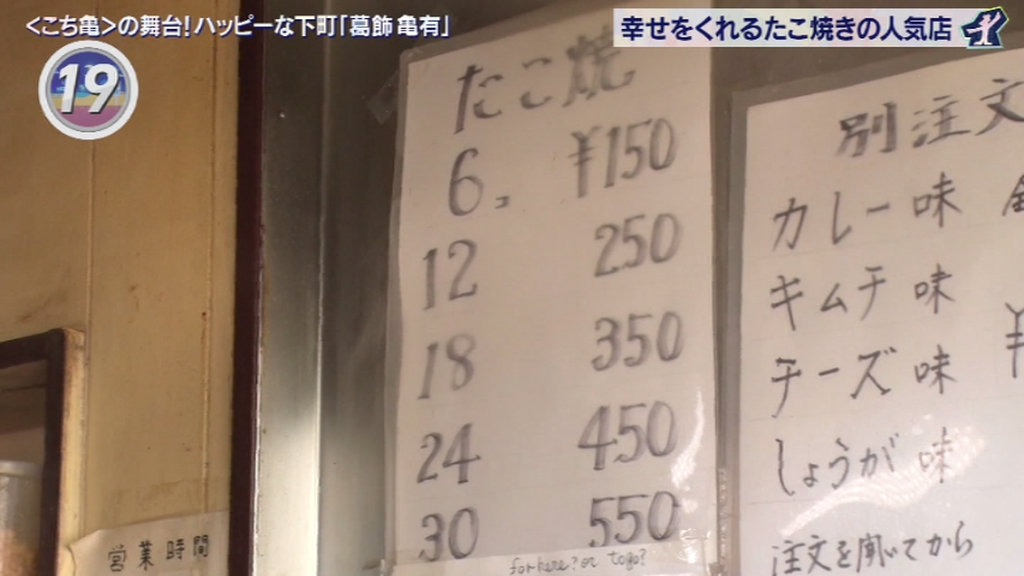 <こち亀>の舞台!ハッピーな下町「葛飾 亀有」
幸せをくれるたこ焼きの人気店
19
たこ焼
6コ ¥150
12 250
18 350
24 450
30 550
for here? or togo?
別注文
カレー味
キムチ味
チーズ味
しょうが味
注文を聞いてから
¥
営業時間